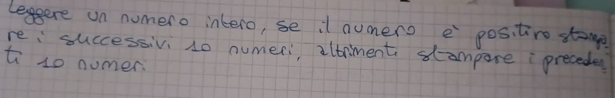 Leggere un numero intero, se il numero è positivo stampa
re i successivi 10 numeri, altrimenti stampare i preceden
ti 10 numeri